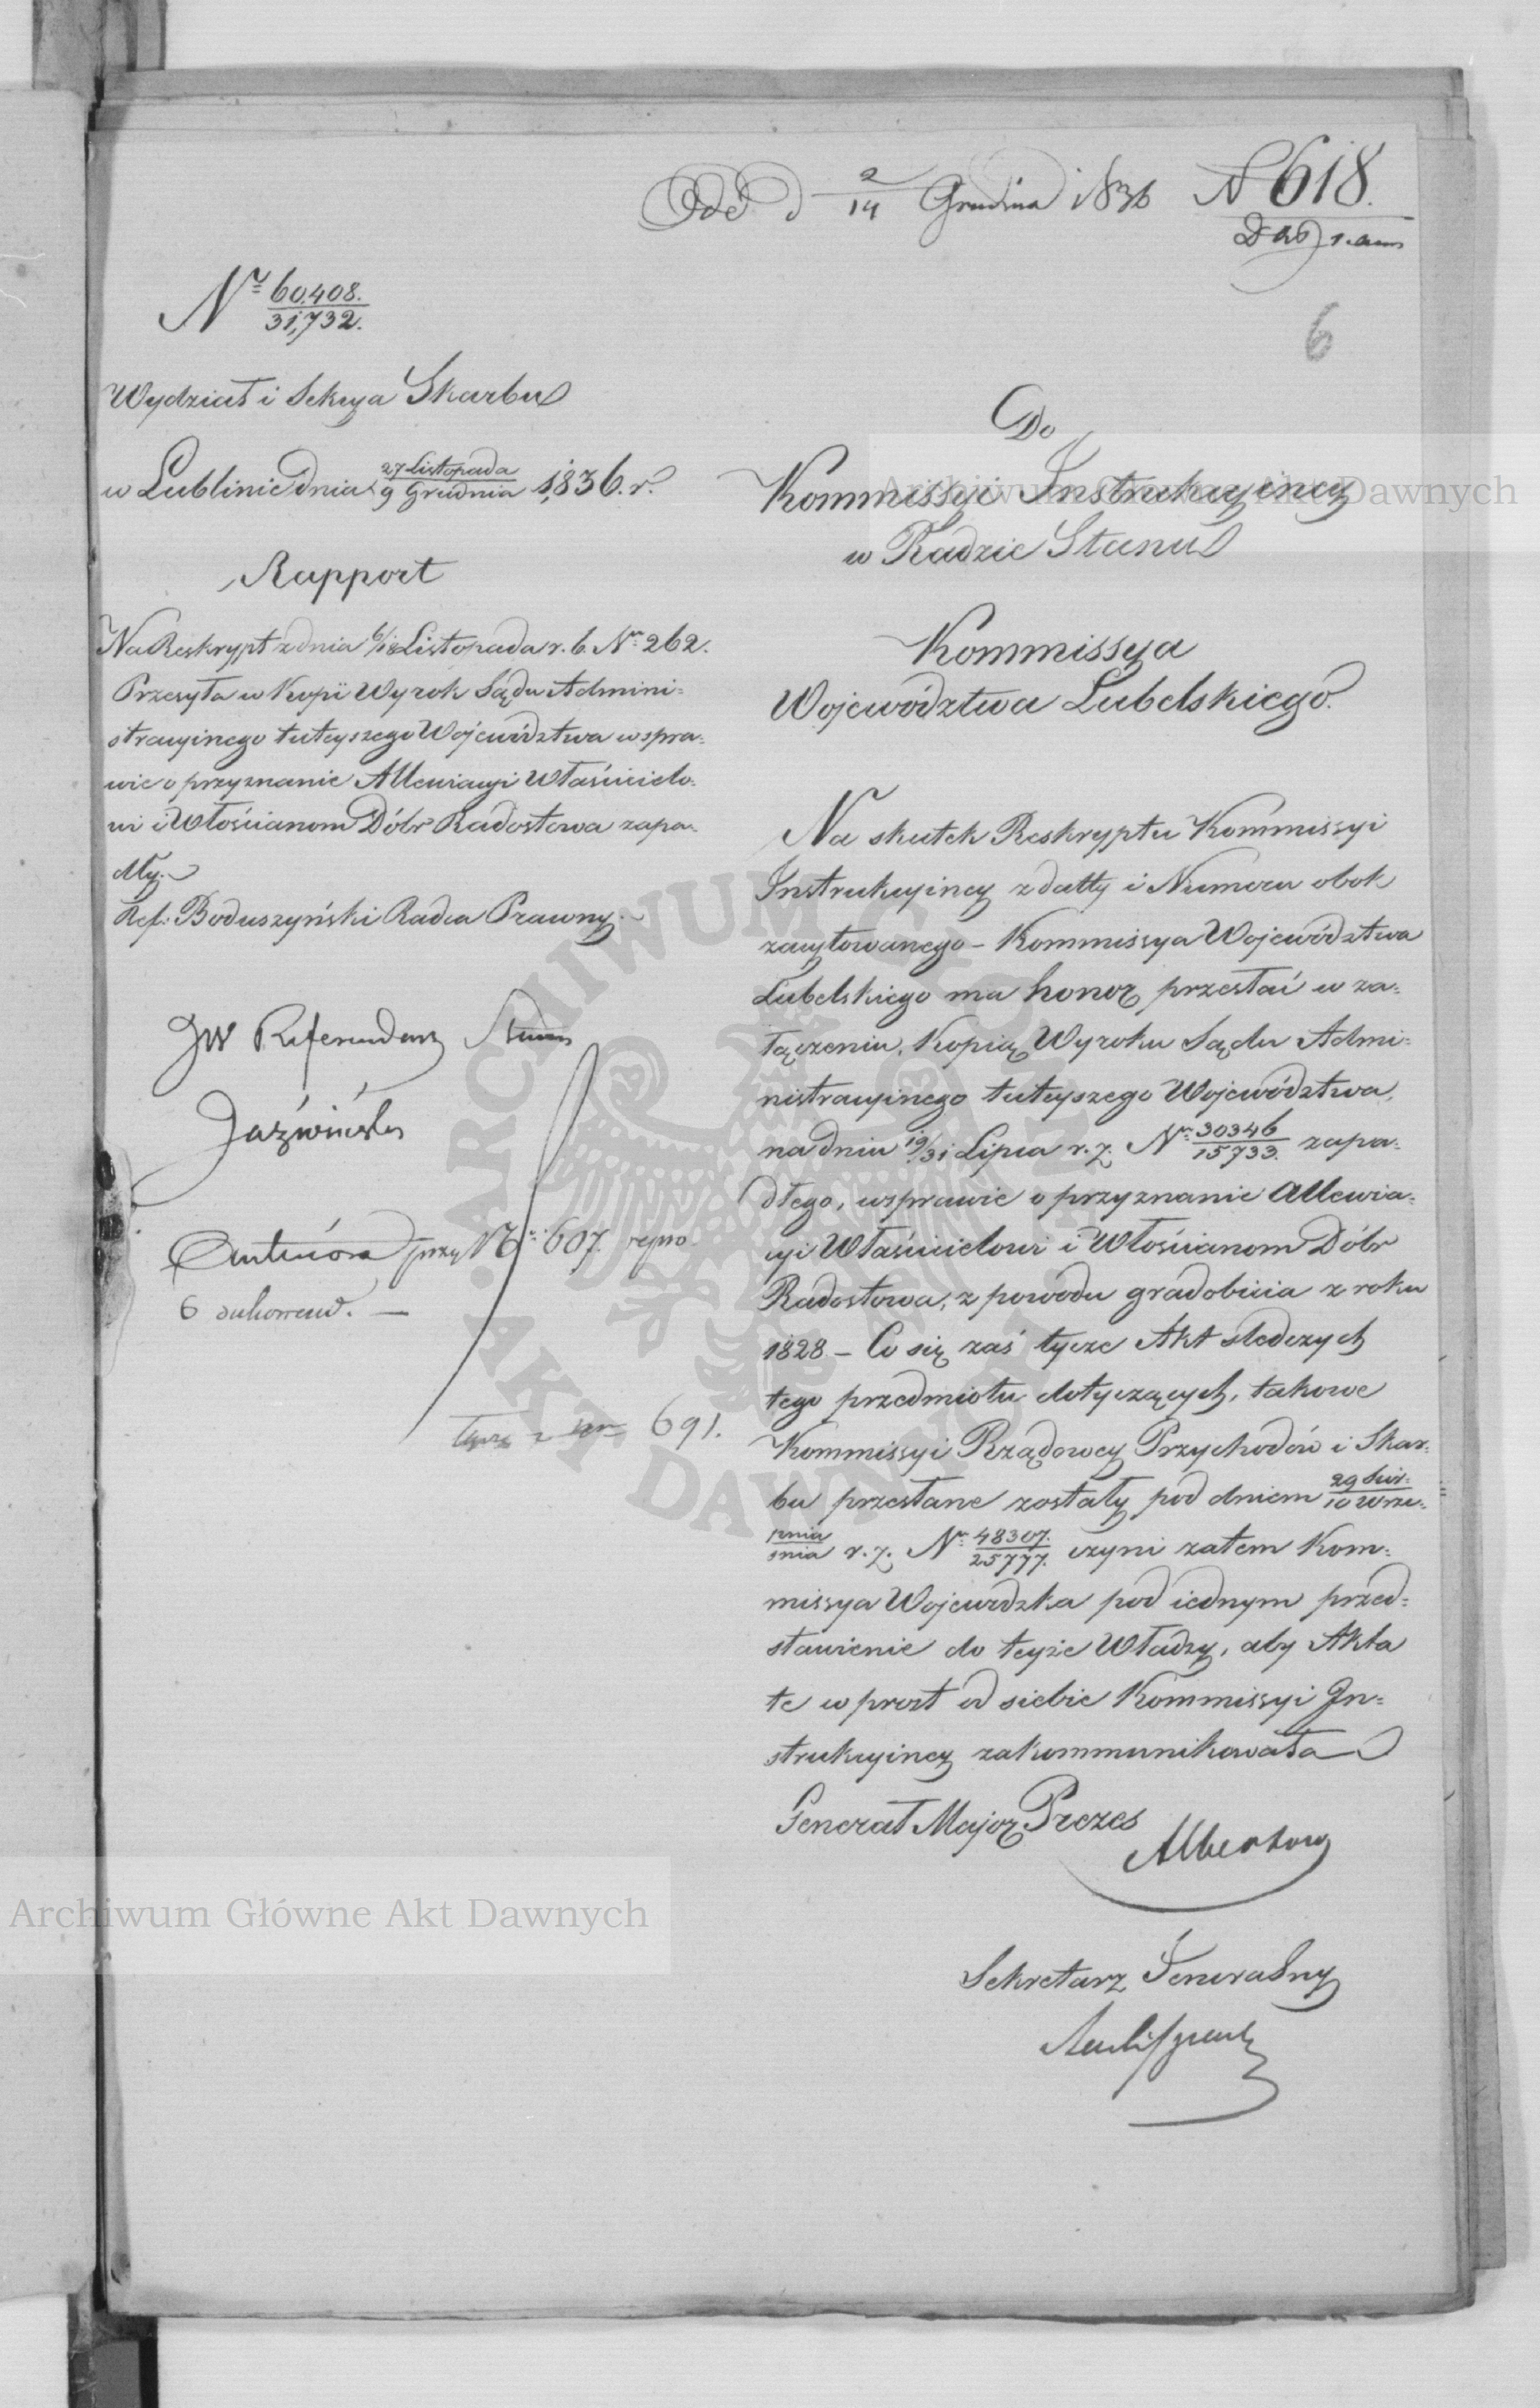 Odeb d 2/14 Grudnia 1836 N 618.
6
Nr 60,408./31,732.
Wydział i Sekcya Skarbu
w Lublinie dnia 27 Listopada/9 Grudnia 1,836. r.
Rapport
Na Reskrypt z dnia 6/18 Listopada r. b. Nr 262.
Przesyła w Kopii Wyrok Sądu Admini=
stracyinego tuteyszego Województwa w spra=
wie o przyznanie Allewiacyi Właścicielo=
wi i Włościanom Dóbr Radostowa zapa=
dły.
Ref: Boduszyński Radca Prawny.
JW Referendarz Stanu
Jaźwiński
przy Nr 607. repro
6
Łączy z nr 691.
Do
Kommissyi Instrukcyiney
w Radzie Stanu
Kommissya
Województwa Lubelskiego.
Na skutek Reskryptu Kommissyi
Instrukcyiney z datty i Numeru obok
zacytowanego – Kommissya Województwa
Lubelskiego ma honor przesłać w za=
łączeniu, Kopią Wyroku Sądu Admi=
nistracyinego tuteyszego Województwa,
na dniu 19/31 Lipca r. z. Nr 30346/15733. zapa=
dłego, w sprawie o przyznanie Allewia=
cyi Właścicielowi i Włościanom Dóbr
Radostowa, z powodu gradobicia z roku
1828 – Co się zaś tycze Akt sledczych
tego przedmiotu dotyczących, takowe
Kommissyi Rządowey Przychodów i Skar=
bu przesłane zostały pod dniem 29 Sier=/10 Wrze=
pnia/snia r. z. Nr 48307./25777. czyni zatem Kom=
missya Wojewódzka pod iednym przed=
stawienie do teyże Władzy, aby Akta
te w prost od siebie Kommissyi In=
strukcyiney zakommunikowała
Generał Major Prezes
Albertow
Sekretarz Generalny
Archiwum Główne Akt Dawnych
Archiwum Główne Akt Dawnych
ARCHIWUM GŁÓWNE
AKT DAWNYCH